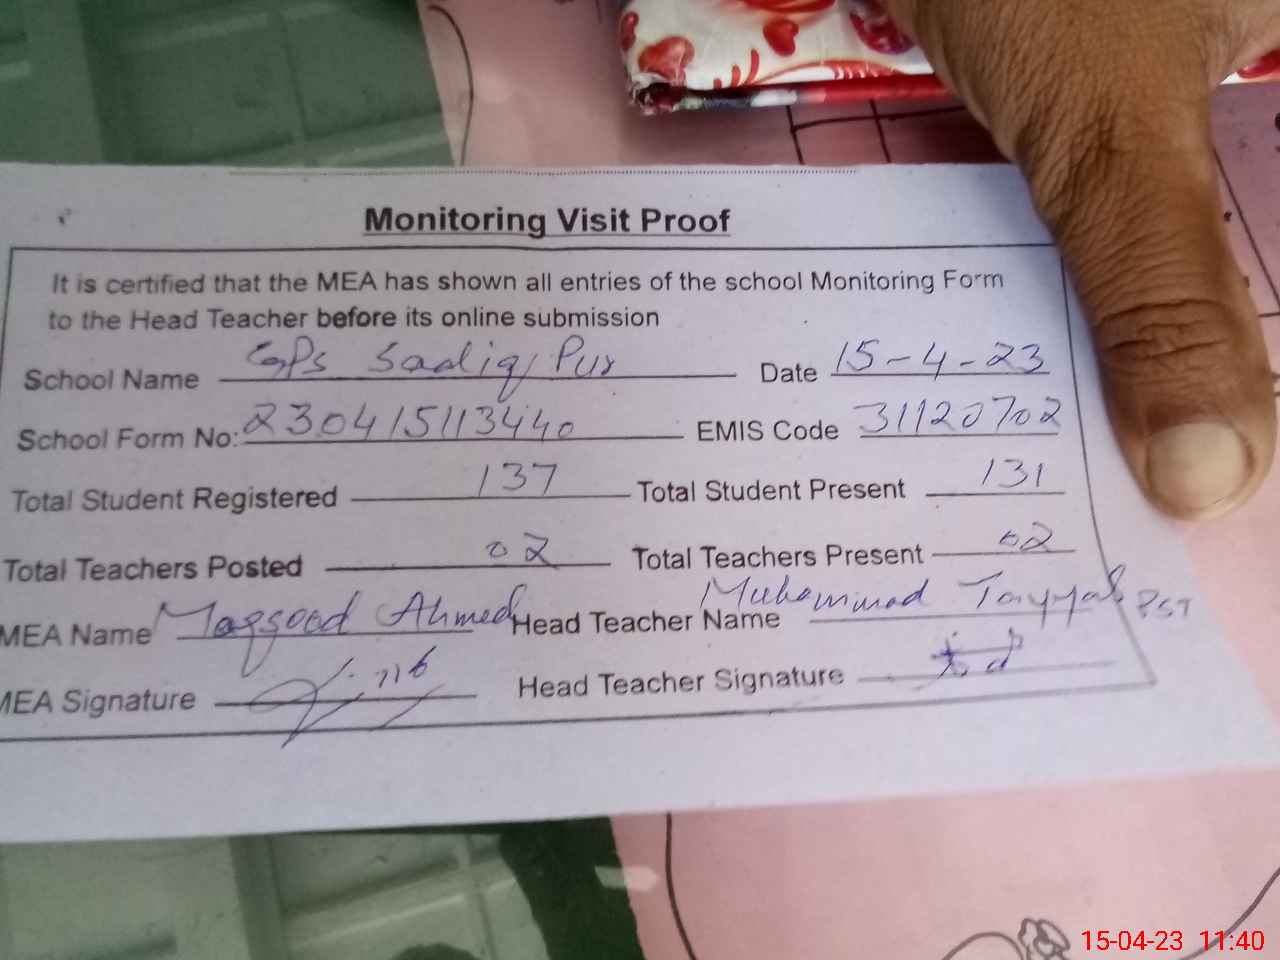 Monitoring Visit Proof
It is certified that the MEA has shown all entries of the school Monitoring Form
to the Head Teacher before its online submission
School Name GPS Sadiq Pur Date 15-4-23
School Form No: 230415113440 EMIS Code 31120702
Total Student Registered 137 Total Student Present 131
Total Teachers Posted 02 Total Teachers Present 02
MEA Name Maqsood Ahmed Head Teacher Name Muhammad Tayyab PST
MEA Signature Head Teacher Signature
15-04-23 11:40